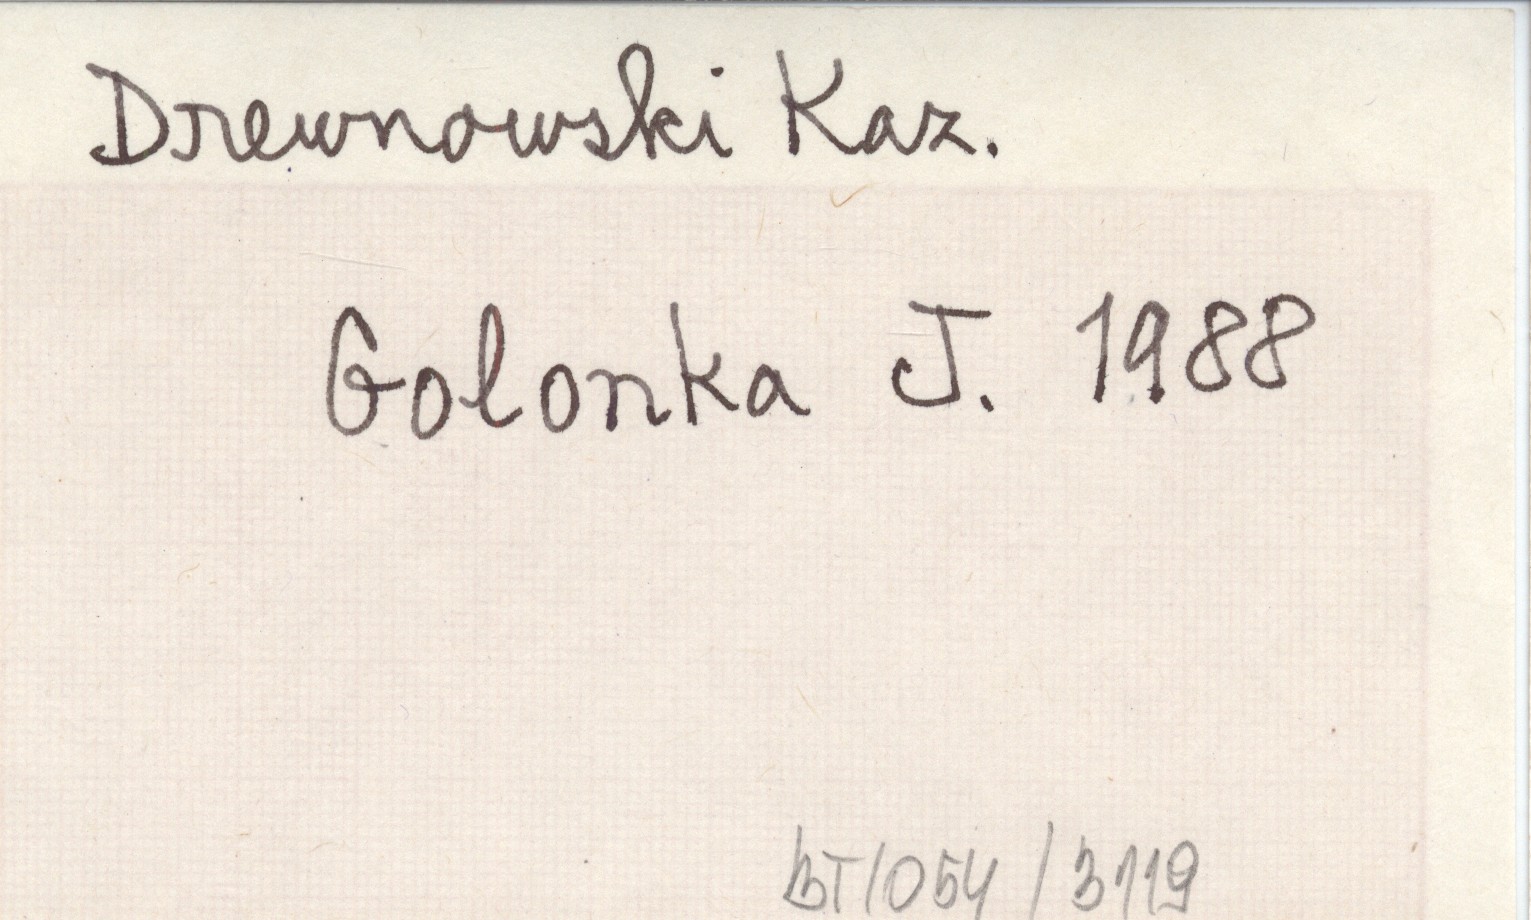 Drewnowski Kaz.
Golonka J. 1988
BT/054/3119